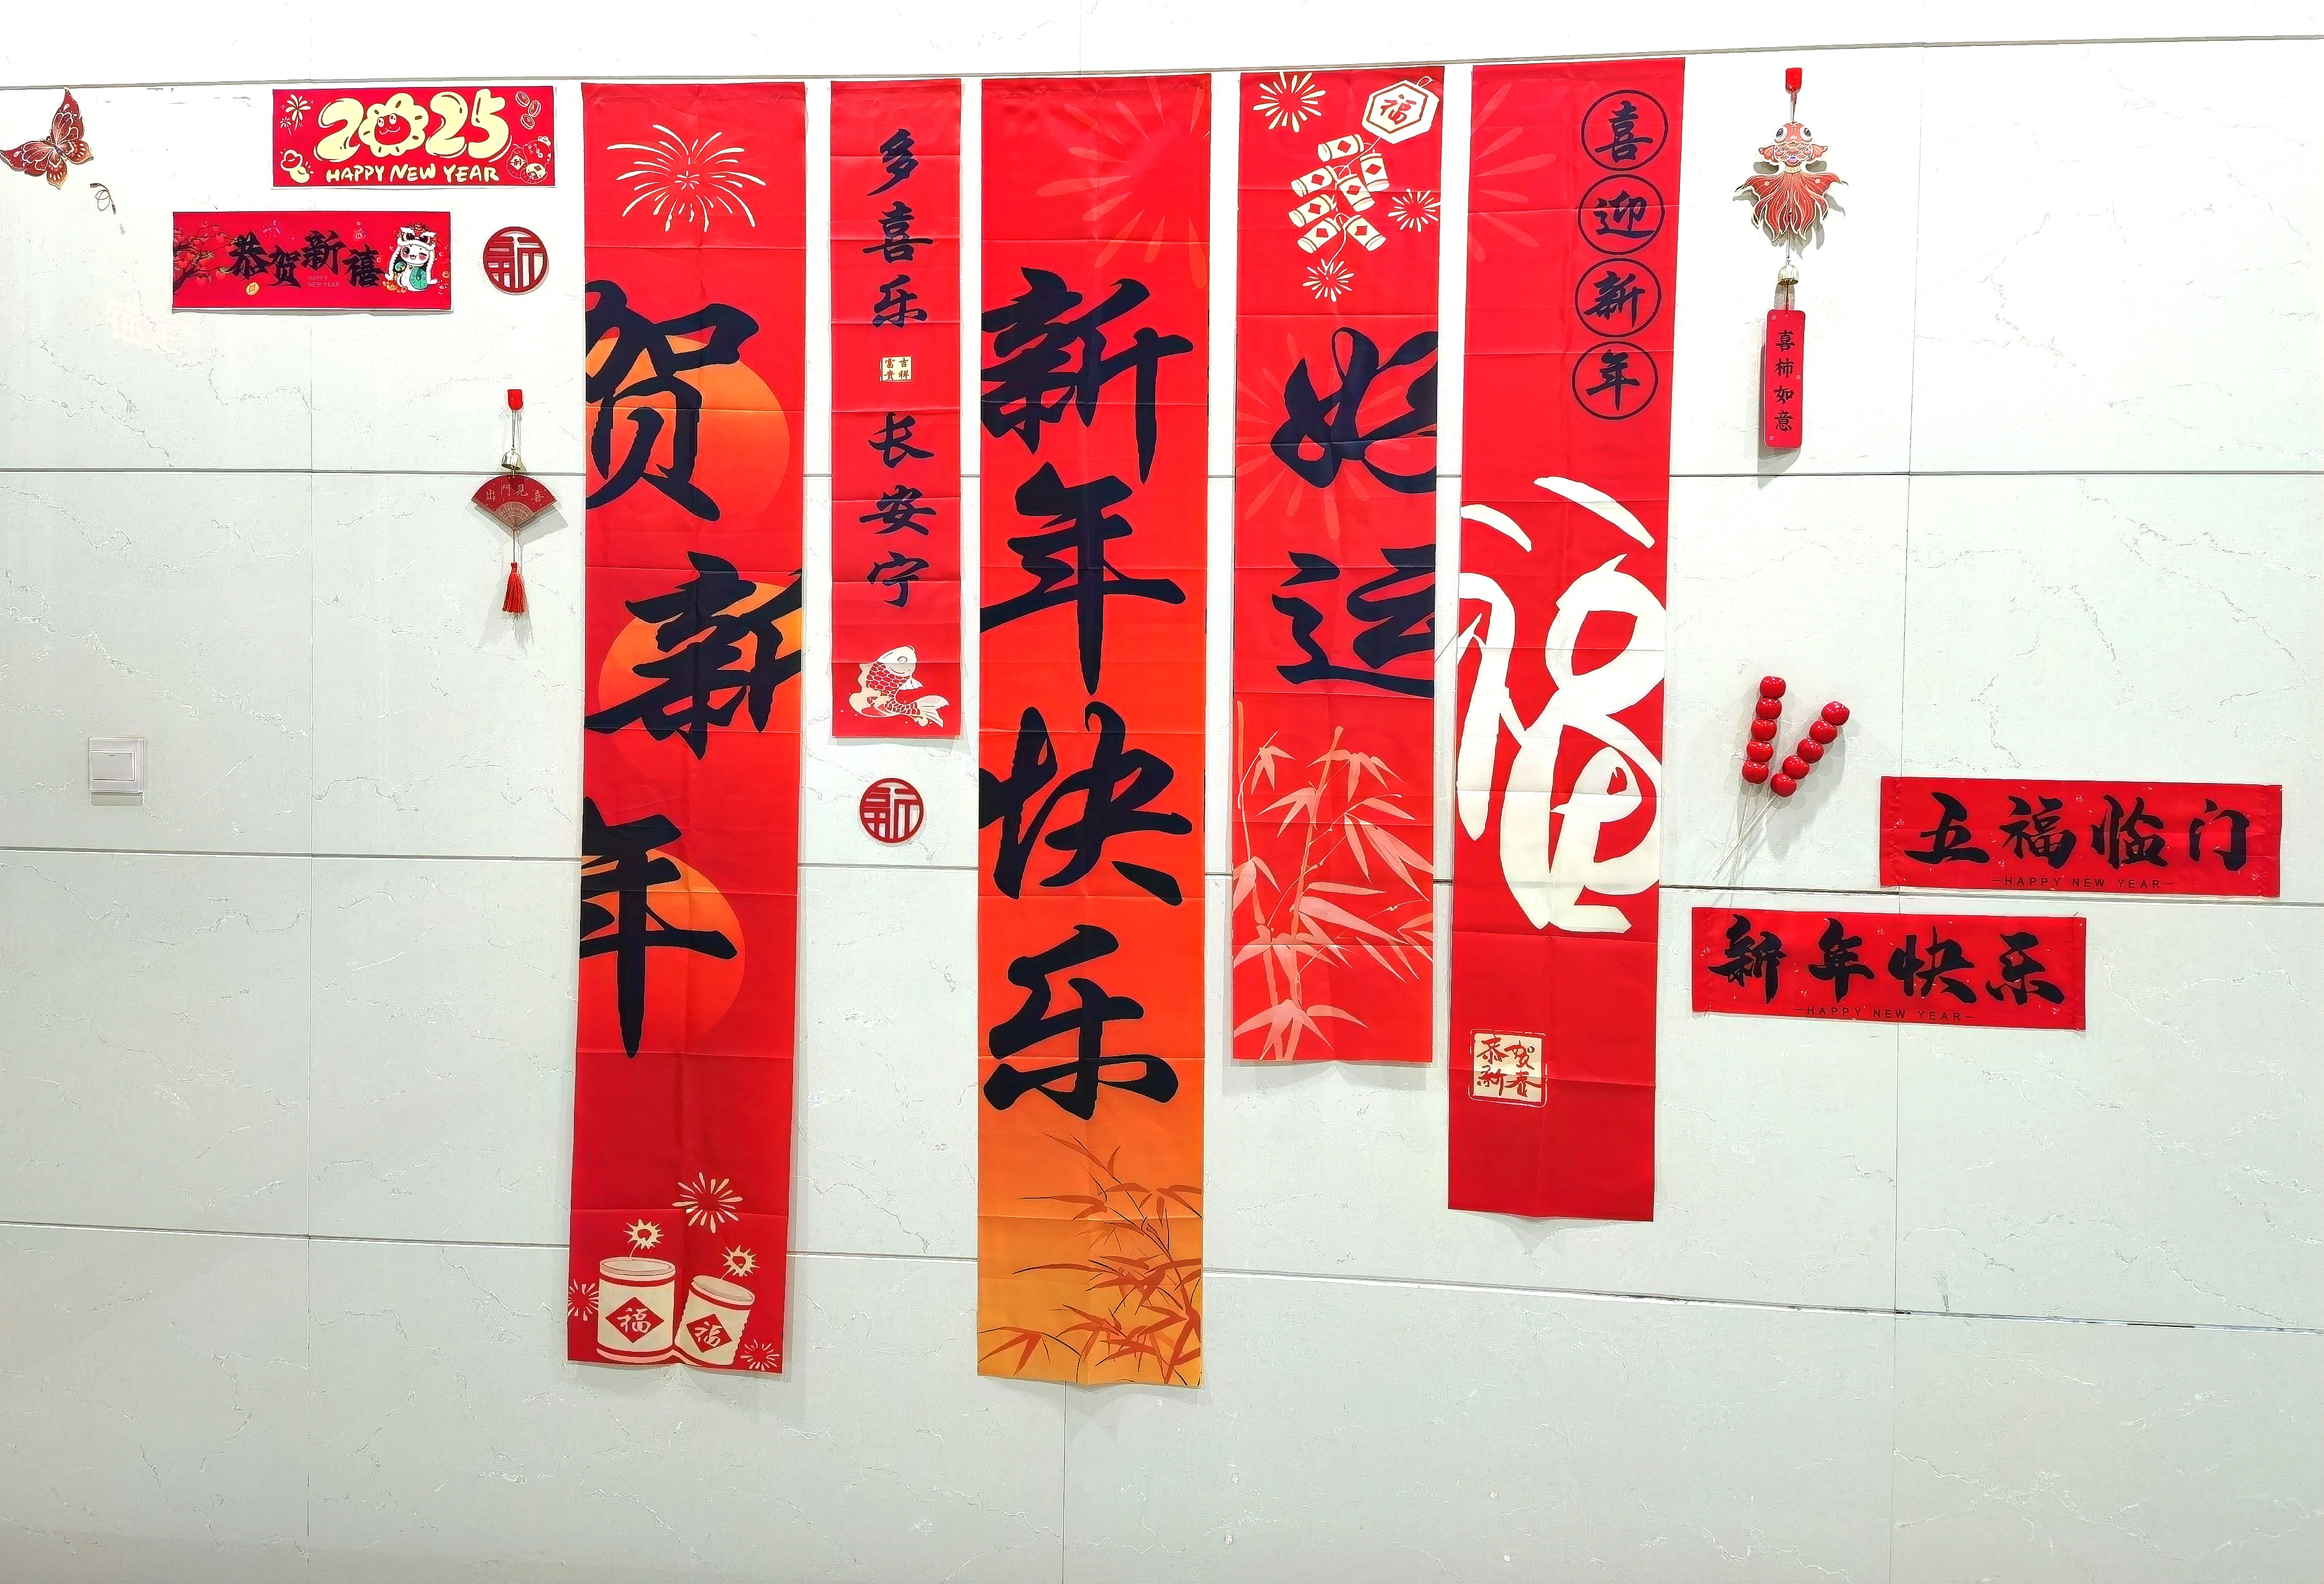 2025
HAPPY NEW YEAR
恭贺新禧
HAPPY
NEW YEAR
新
出門見喜
贺新年
福
福
多喜乐
吉祥
富贵
长安宁
新
新年快乐
福
好运
喜迎新年
福
恭贺
新春
喜柿如意
五福临门
HAPPY NEW YEAR
新年快乐
HAPPY NEW YEAR